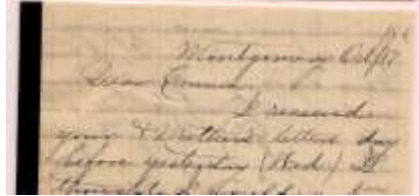 Montgomery Oct/17
Dear Emma
I received
your & Mother's letters day
before yesterday (Wed.)